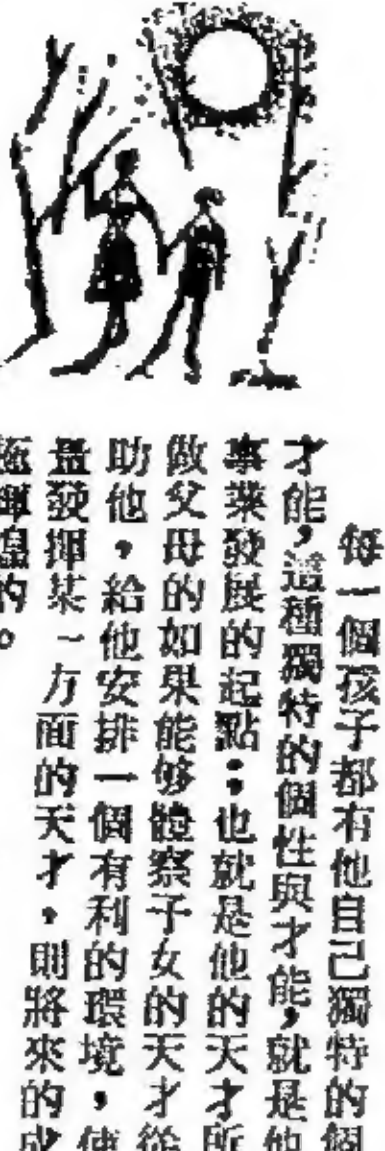 每一個孩子都有他自己獨特的個
才能，這種獨特的個性與才能，就是他
事業發展的起點；也就是他的天才所
做父母的如果能够體察子女的天才從
助他，給他安排一個有利的環境，使
量發揮某一方面的天才，則將來的成
極輝煌的。